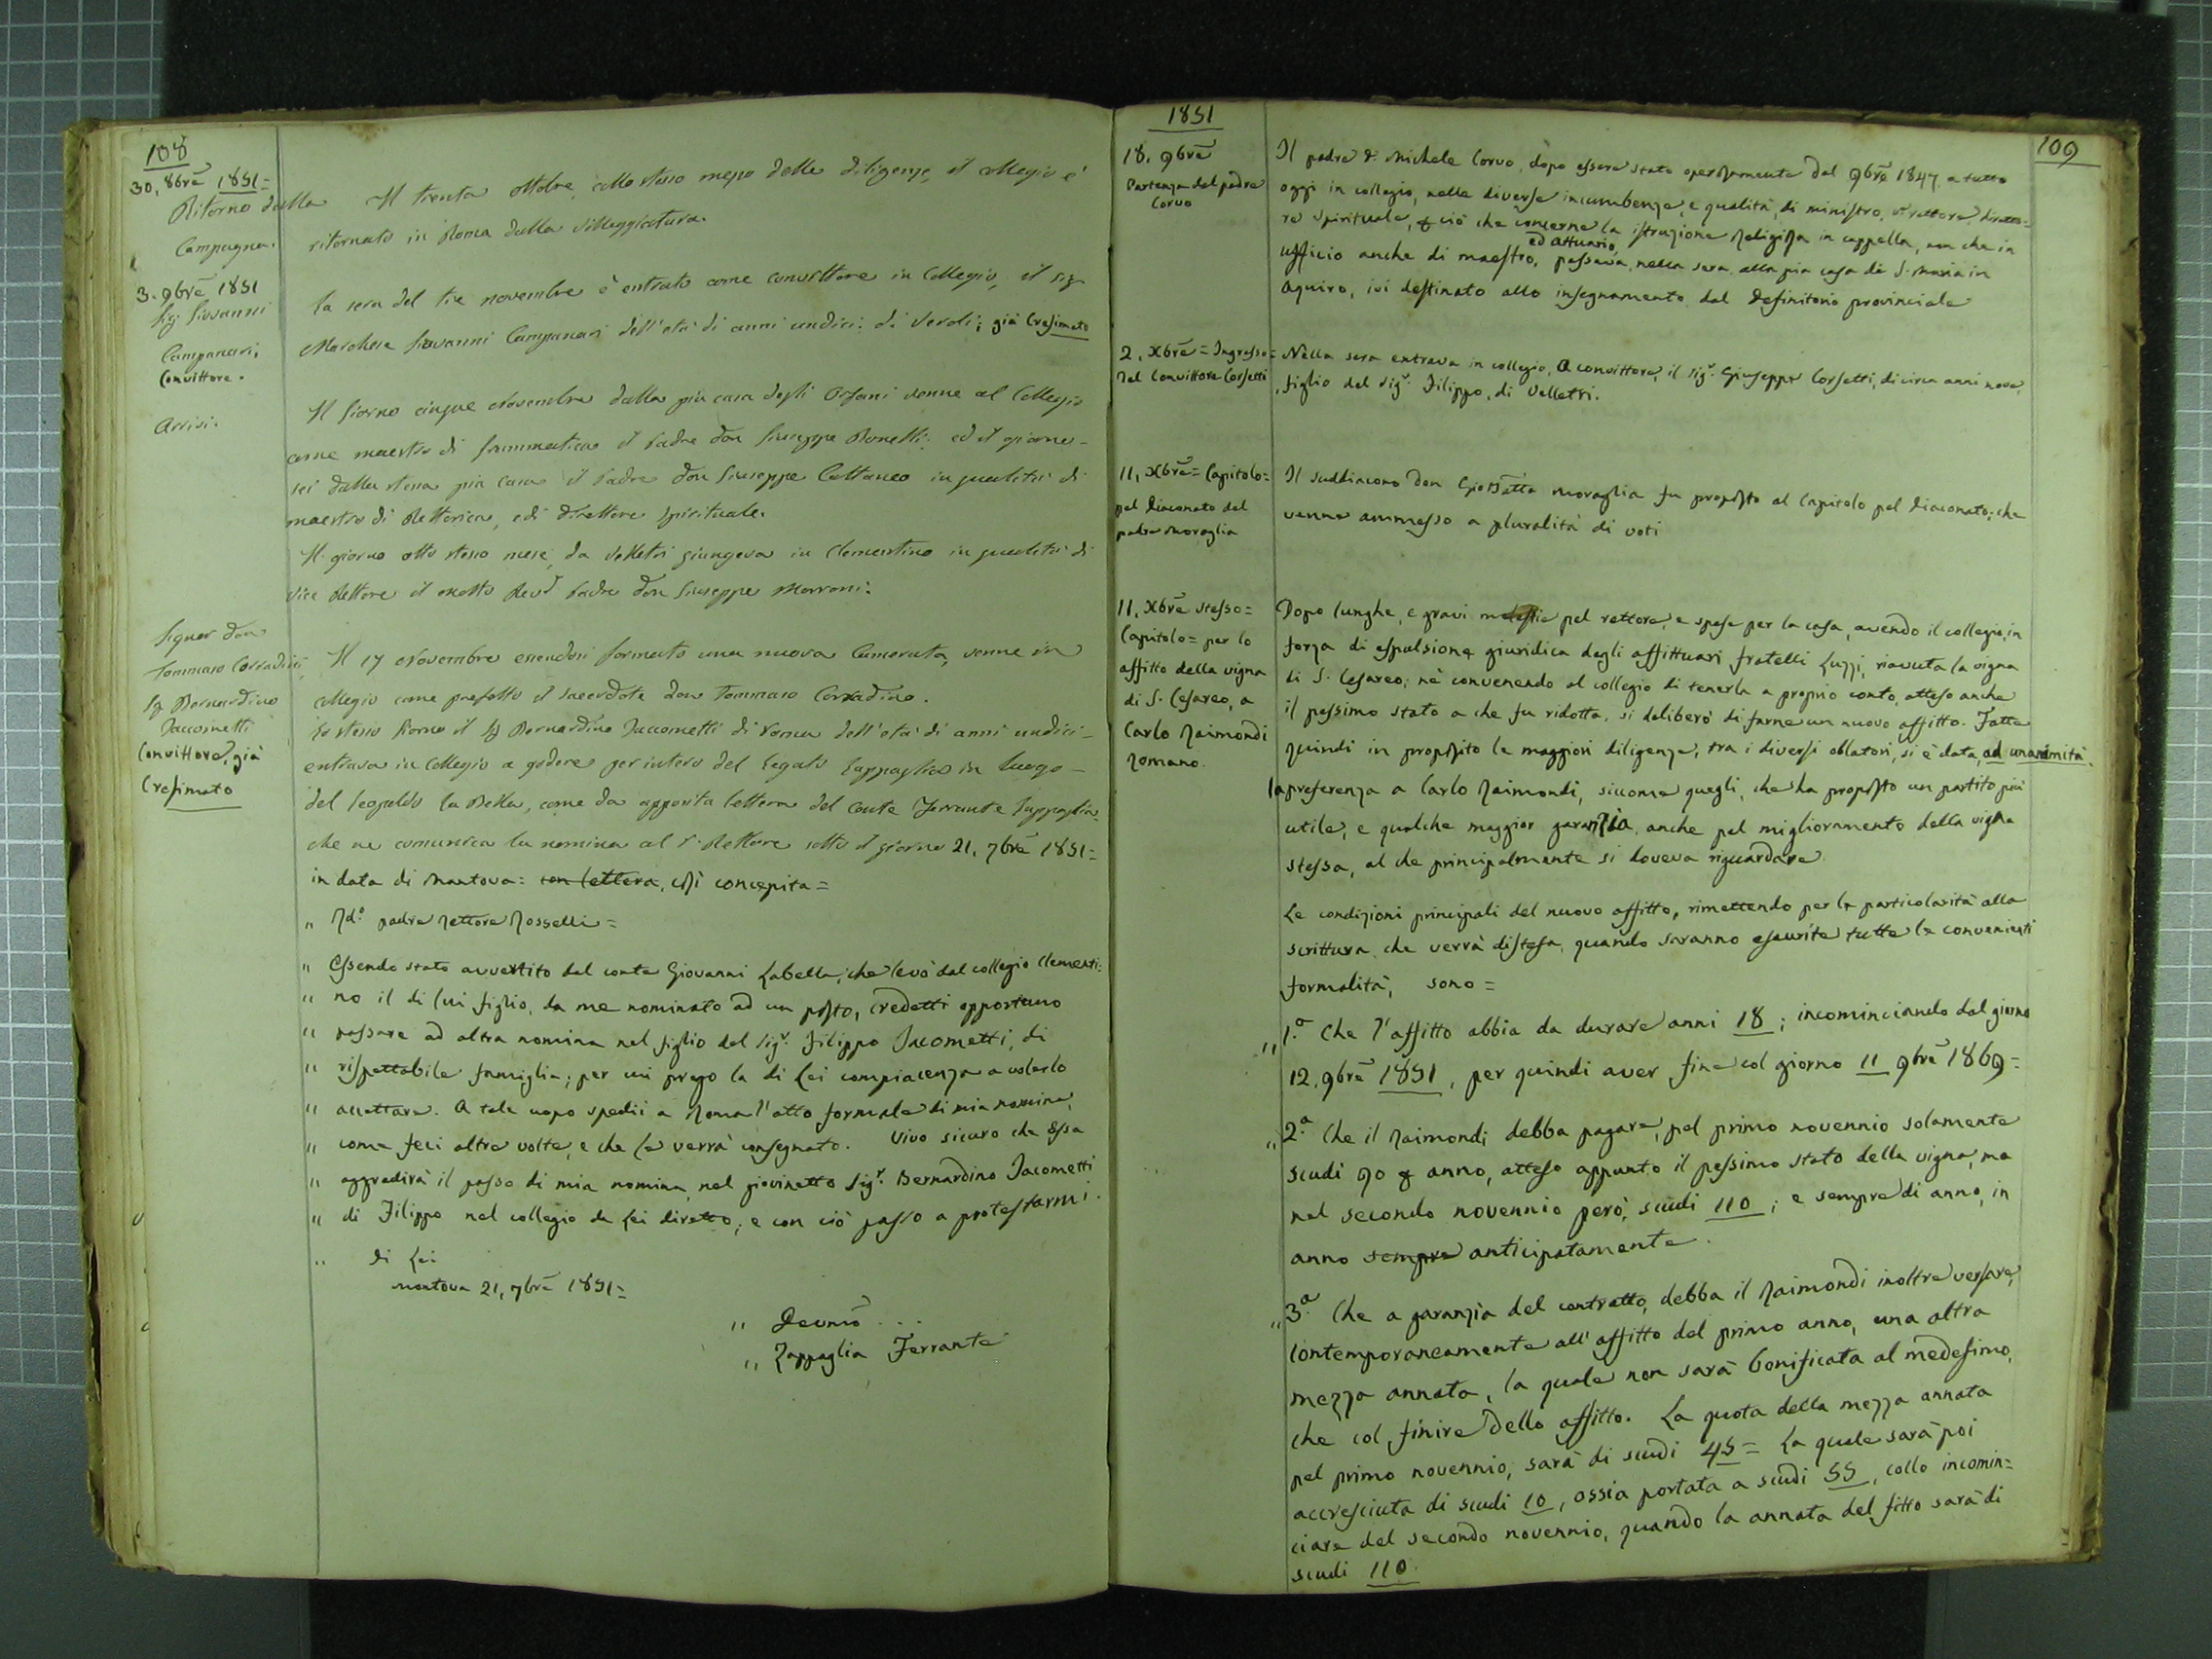 108
30, 8bre 1851=
Ritorno dalla
Campagna.
Il trenta ottobre, collo stesso mezzo delle diligenze, il collegio è
ritornato in Roma dalla Villeggiatura.
3. 9bre 1851
Sig Giovanni
Campanari,
Convittore.
La sera del tre novembre è entrato come convittore in Collegio, il sig
Marchese Giovanni Campanari dell'età di anni undici: di Veroli; già Cresimato
Arrivi.
Il Giorno cinque Novembre dalla pia casa degli Orfani venne al Collegio
come maestro di Grammatica il Padre don Giuseppe Bonelli: ed il giorno-
sei dalla stessa pia casa il Padre don Giuseppe Cattaneo in qualità di
maestro di Rettorica, e di direttore Spirituale.
Il giorno otto stesso mese, da Velletri giungeva in Clementino in qualità di
Vice Rettore il molto Revd Padre don Giuseppe Marroni:
Signor don
Tommaso Corradini,
Sg Bernardino
Jaccometti
Convittore, già
Cresimato
Il 17 Novembre essendosi formata una nuova Camerata, venne in
Collegio come prefetto il sacerdote don Tommaso Corradino.
Lo stesso Giorno il Sg Bernardino Jaccometti di Roma dell'età di anni undici-
entrava in Collegio a godere per intero del Legato Zappaglia in Luogo-
del Leopoldo La Bella, come da apposita lettera del Conte Ferrante Zappaglia,
che ne comunica la nomina al P. Rettore sotto il giorno 21, 7bre 1851=
in data di Mantova: con lettera, così concepita=
" Rdo. padre Rettore Rosselli=
" Essendo stato avvertito dal conte Giovanni Labella, che levò dal collegio Clementi:
" no il di lui figlio, da me nominato ad un posto, credetti opportuno
" passare ad altra nomina nel figlio del Sigr. Filippo Jacometti, di
" rispettabile famiglia; per cui prego la di Lei compiacenza a volerlo
" accettare. A tale uopo spedii a Roma l'atto formale di mia nomina,
" come feci altre volte, e che Le verrà consegnato. Vivo sicuro che Essa
" aggradirà il passo di mia nomina nel giovinetto Sigr. Bernardino Jacometti
" di Filippo nel collegio da Lei diretto; e con ciò passo a protestarmi.
" di Lei
Mantova 21, 7bre 1851=
" Devmo...
" Zappaglia Ferrante
1851
109
18. 9bre
Partenza del padre
Corvo
Il padre D. Michele Corvo, dopo essere stato operosamente dal 9bre 1847, a tutto
oggi in collegio, nelle diverse incumbenze, e qualità, di ministro, v. rettore, diretto=
re spirituale, & ciò che concerne la istruzione Religiosa in cappella, non che in
ufficio anche di maestro, ed attuario, passava nella sera alla pia casa di S. Maria in
Aquiro, ivi destinato allo insegnamento dal Definitorio provinciale
2, Xbre = Ingresso=
del Convittore Corsetti
Nella sera entrava in collegio, a convittore, il Sigr. Giuseppe Corsetti, di circa anni nove,
figlio del Sigr. Filippo, di Velletri.
11, Xbre = Capitolo=
pel Diaconato del
padre Moraglia
Il suddiacono Don GioBatta Moraglia fu proposto al Capitolo pel Diaconato; che
venne ammesso a pluralità di voti
11, Xbre stesso=
Capitolo= per lo
affitto della vigna
di S. Cesareo, a
Carlo Raimondi
Romano.
Dopo lunghe, e gravi molestie pel rettore, e spese per la casa, avendo il collegio, in
forza di espulsione giuridica degli affittuari fratelli Luzzi, riavuta la vigna
di S. Cesareo; nè convenendo al collegio di tenerla a proprio conto, atteso anche
il pessimo stato a che fu ridotta, si deliberò di farne un nuovo affitto. Fatte
quindi in proposito le maggiori diligenze, tra i diversi oblatori, si è data, ad unanimità,
la preferenza a Carlo Raimondi, siccome quegli, che ha proposto un partito più
utile, e qualche maggior garanzia, anche pel miglioramento della vigna
stessa, al che principalmente si doveva riguardare.
Le condizioni principali del nuovo affitto, rimettendo per le particolarità alla
scrittura che verrà distesa, quando saranno esaurite tutte le convenienti
formalità, sono=
" 1.a Che l'affitto abbia da durare anni 18; incominciando dal giorno
12, 9bre 1851, per quindi aver fine col giorno 11 9bre 1869=
" 2.a Che il Raimondi debba pagare, pel primo novennio solamente
scudi 90 & anno, atteso appunto il pessimo stato della vigna, ma
nel secondo novennio però, scudi 110; e sempre di anno, in
anno sempre anticipatamente.
" 3.a Che a garanzia del contratto, debba il Raimondi inoltre versare,
contemporaneamente all'affitto del primo anno, una altra
mezza annata, la quale non sarà bonificata al medesimo,
che col finire dello affitto. La quota della mezza annata
pel primo novennio, sarà di scudi 45= La quale sarà poi
accresciuta di scudi 10, ossia portata a scudi 55, collo incomin=
ciare del secondo novennio, quando la annata del fitto sarà di
scudi 110.